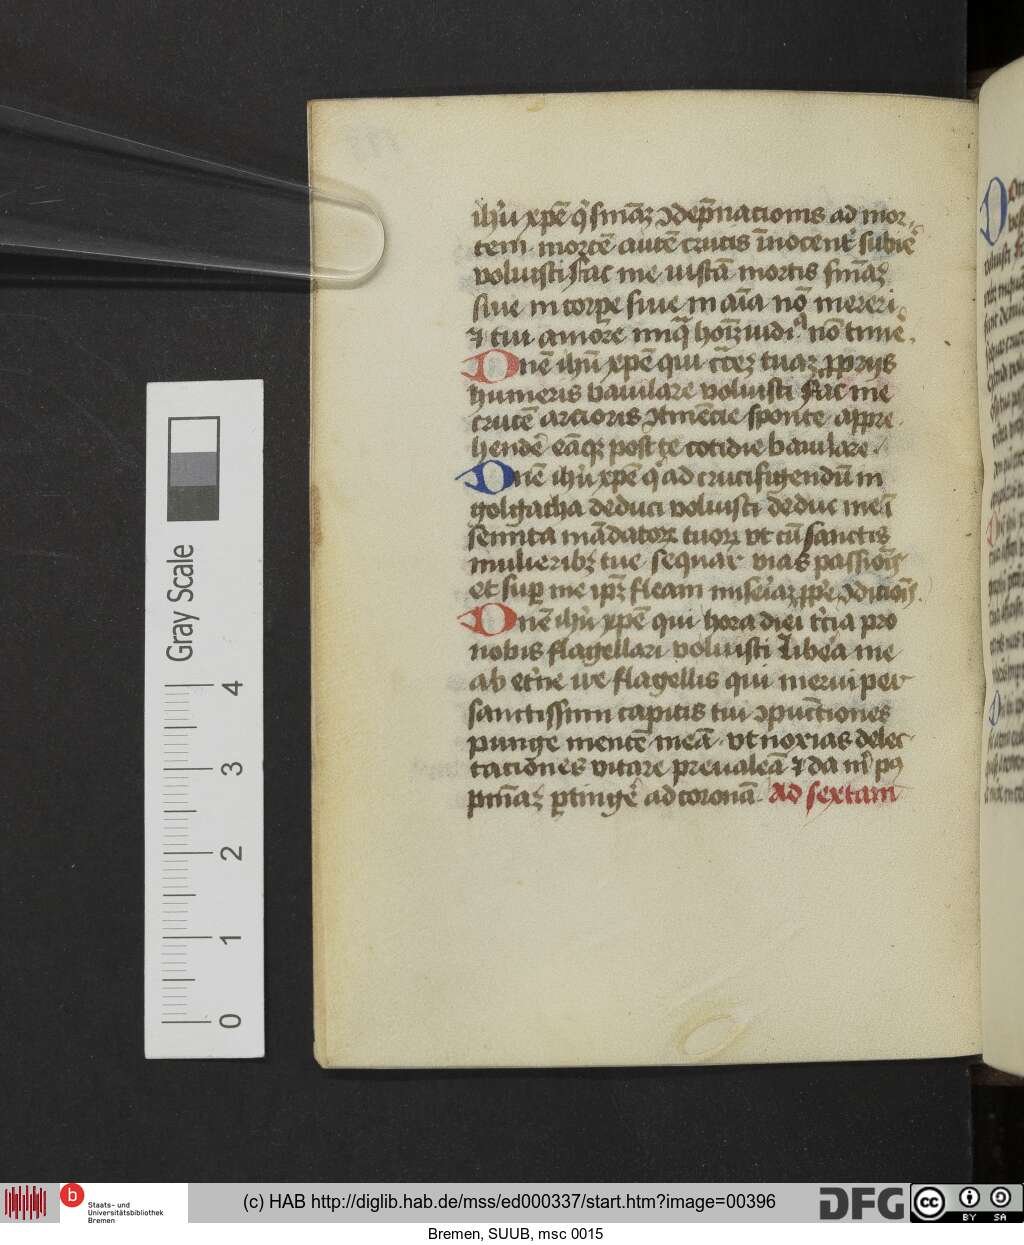 ihū xpē q̄ smāꝫ ꝯdēpnationis ad mor
tem mortē autē crucis īnocent̄ subie
voluisti fac me iustā mortis smāꝫ
siue in corpe siue in aīa nō mereri
⁊ tui amore inīq hoīꝫ iudi nō timē
Dnē ihū xpē qui c̄cēꝫ tuaꝫ ꝓprijs
humeris baiulare voluisti Fac me
crucē artioris ꝯtinēcie sponte appre
hendē eāqꝫ post te cotidie baiulare
Dnē ihū xpē q̄ ad crucifigendū in
golgatha deduci voluisti deduc meā
semita mādatoꝝ tuoꝝ vt cū sanctis
mulieribꝫ tue sequar vias passiois
et sup me ipꝫ fleam
Dnē ihū xpē qui hora diei t̄cia pro
nobis flagellari voluisti Libea me
ab et̄ne ire flagellis qui merui per
sanctissimi capitis tui ꝯpūctiones
punge mentē meā vt noxias delec
tationes vitare preualeā ⁊ da m̄ pꝰ
pmāꝫ ꝑtingē ad coronā Ad sextam
Gray Scale
0 1 2 3 4
b Staats- und
Universitätsbibliothek
Bremen
(c) HAB http://diglib.hab.de/mss/ed000337/start.htm?image=00396
DFG
cc BY SA
Bremen, SUUB, msc 0015